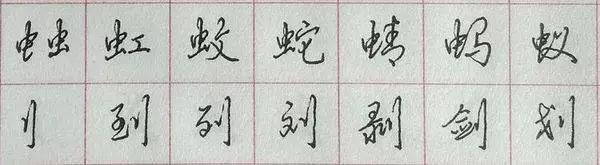 虫虫 虹 蚊 蛇 蜻 蚂 蚁
刂 到 列 刘 剥 剑 划